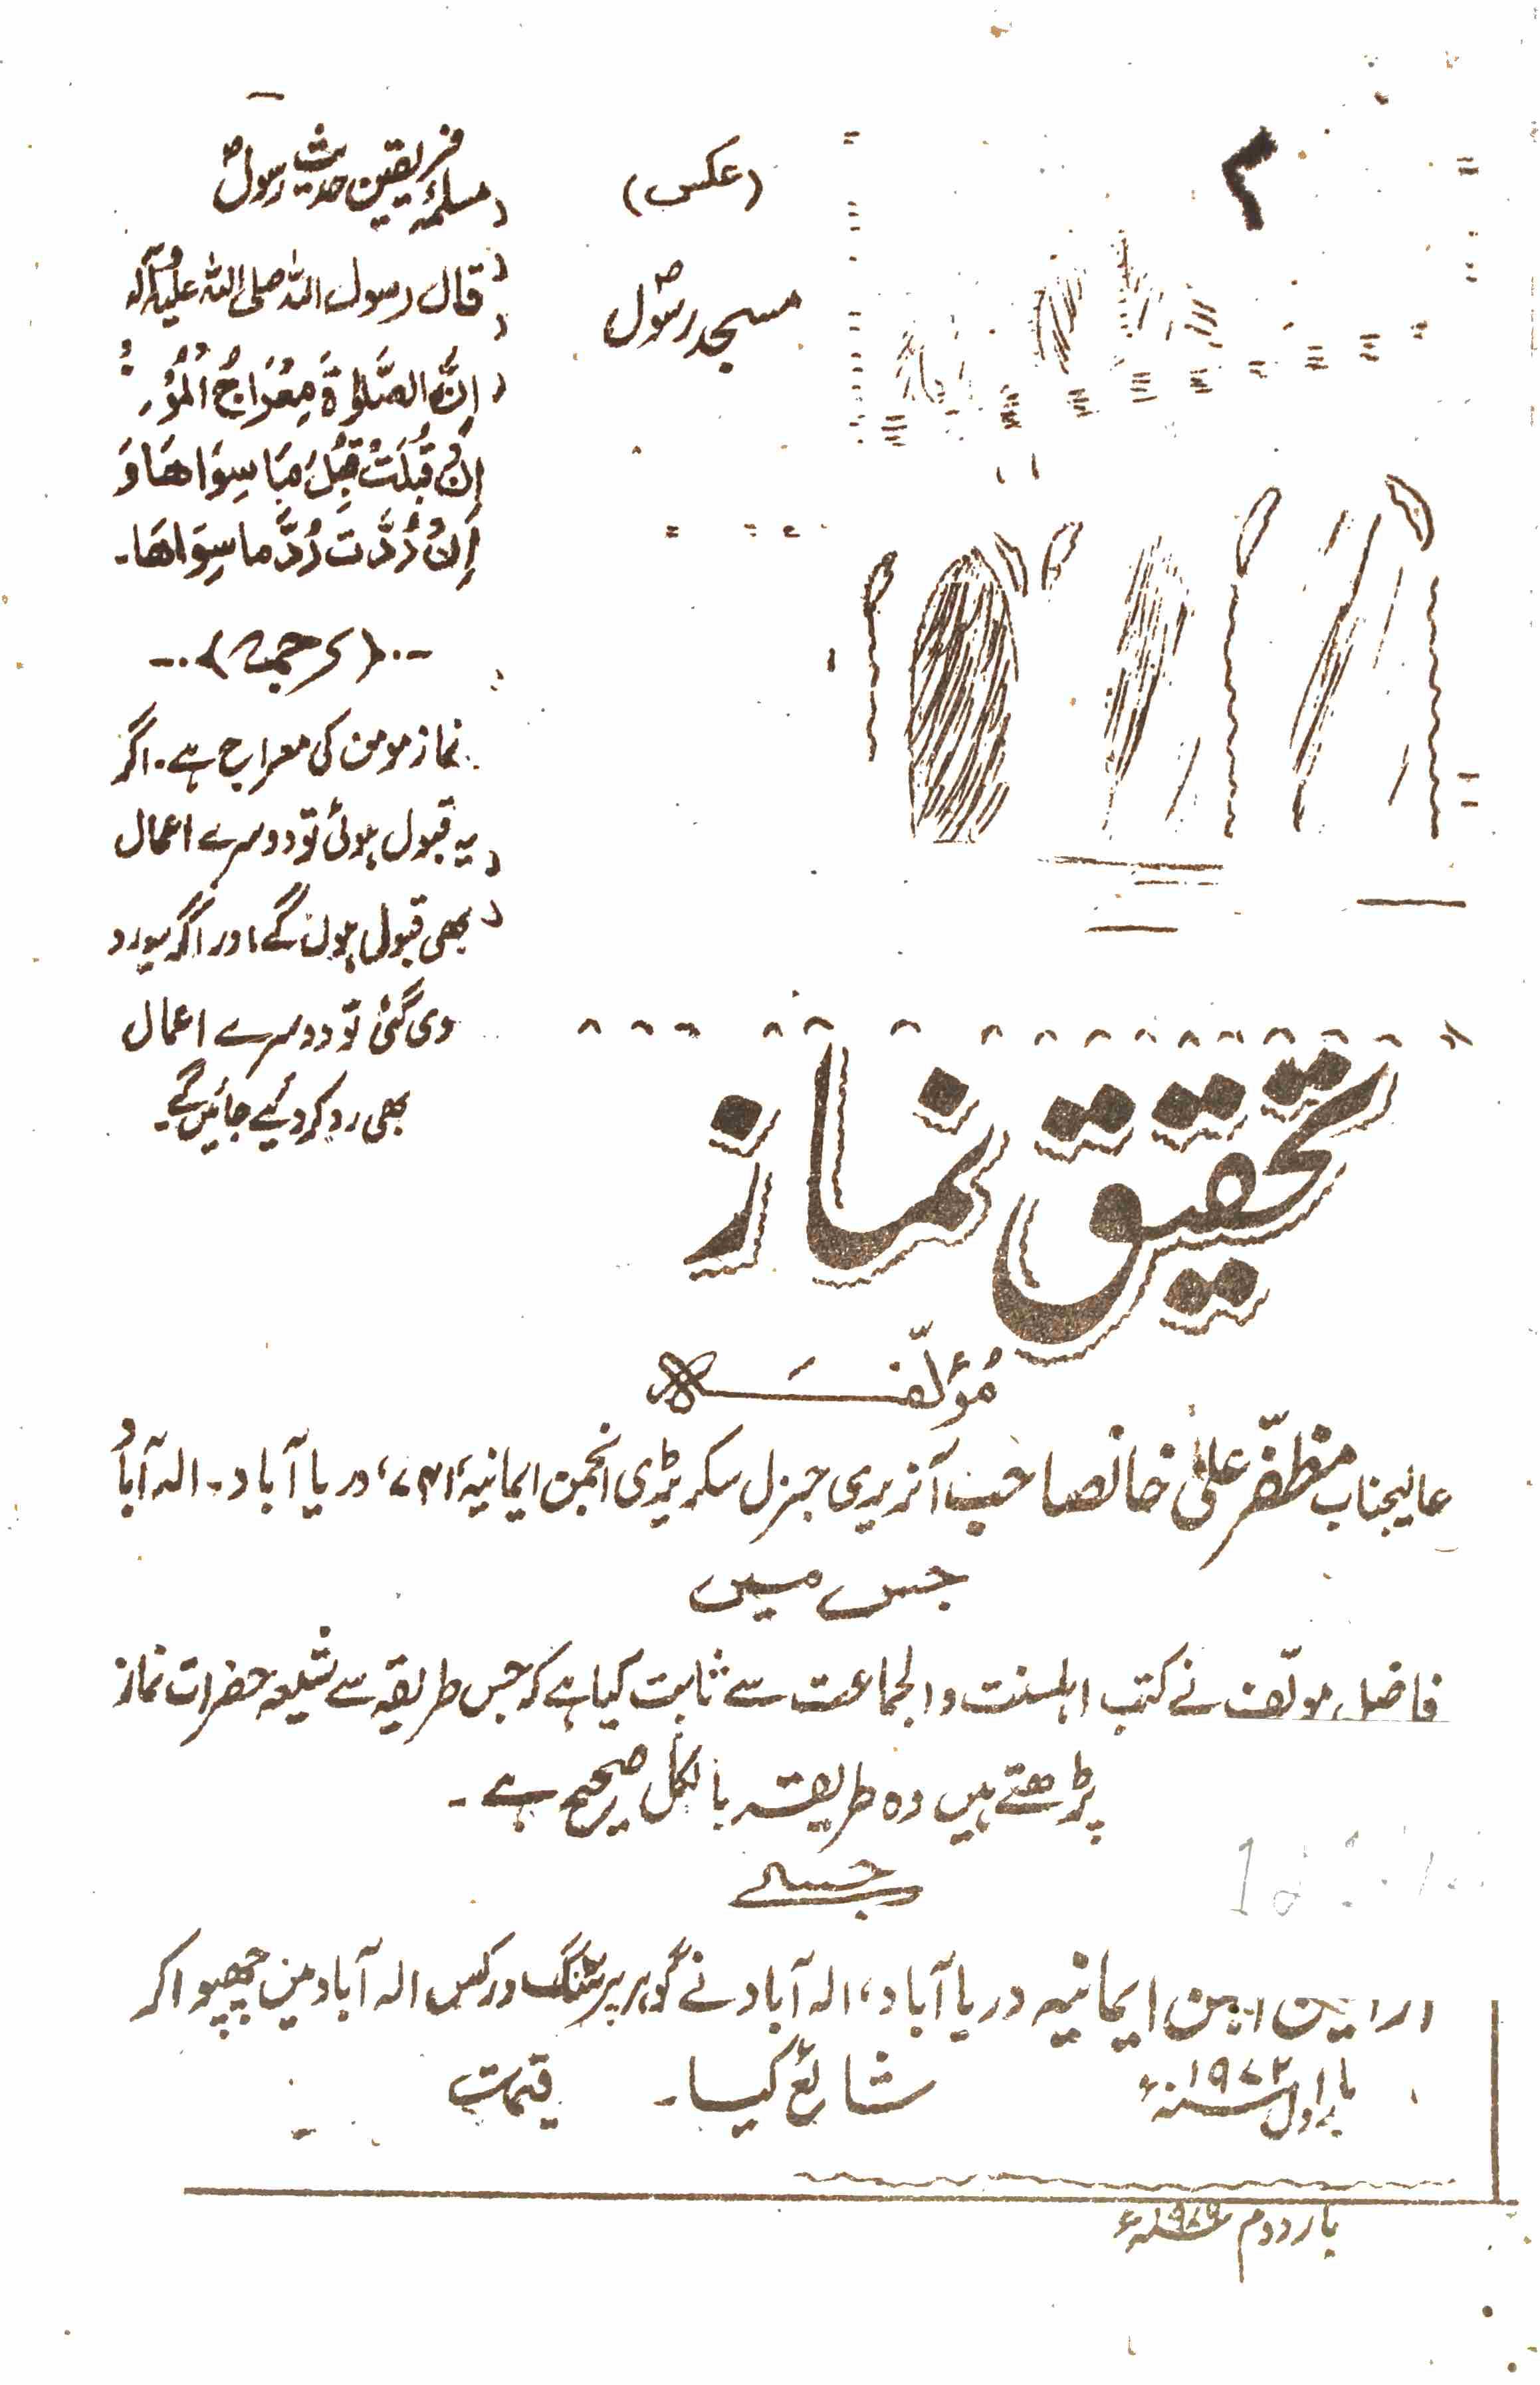 ۲
(عکس)
مسجد رسولؐ
مسلمہ فریقین حدیث رسولؐ
قال رسول اللہ صلی اللہ علیہ وآلہ
اِنَّ الصَّلوٰةَ مِعْرَاجُ الْمُؤْ
اِنْ قُبِلَتْ قُبِلَ مَا سِوَاهَا وَ
اِنْ رُدَّتْ رُدَّ مَا سِوَاهَا۔
(ترجمہ)
نماز مومن کی معراج ہے۔ اگر
یہ قبول ہوئی تو دوسرے اعمال
بھی قبول ہوں گے اور اگر یہ رد
دی گئی تو دوسرے اعمال
بھی رد کر دیئے جائیں گے۔
تحقیق نماز
مُؤلّفَہ
عالیجناب مظفّر علی خانصاحب آنریری جنرل سکریٹری انجمن ایمانیہ ۷۴۱، دریا آباد۔ الہ آباد
جس میں
فاضل مولّف نے کتب اہلسنت والجماعت سے ثابت کیا ہے کہ جس طریقہ سے شیعہ حضرات نماز
پڑھتے ہیں وہ طریقہ بالکل صحیح ہے۔
جسے
اراکین انجمن ایمانیہ دریا آباد، الہ آباد نے گوہر پرنٹنگ ورکس الہ آباد میں چھپوا کر
شائع کیا۔
بار اول سنہ ۱۹۷۲ء
قیمت
بار دوم سنہ ء